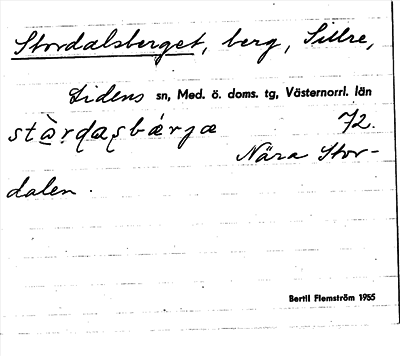 Stordalsberget, berg, Sillre,
Lidens sn, Med. ö. doms. tg, Västernorrl. län
72.
Nära Stor-
dalen.
Bertil Flemström 1955